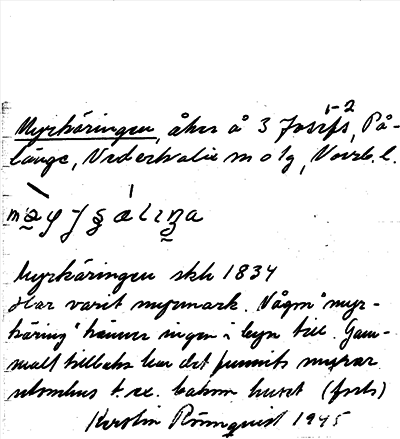 1-2
Myrkäringen, åker å 3 Josefs, På-
länge, Nederkalix m olg, Norrb. l.
Myrkäringen skh 1834
Har varit myrmark. Någon "myr-
käring" känner ingen i byn till. Gam-
malt tillbaka har det funnits myrar
utomhus t. ex. bakom huset (forts)
Kerstin Rönnquist 1945